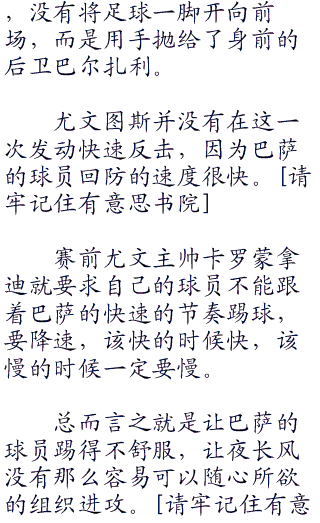 ，没有将足球一脚开向前
场，而是用手抛给了身前的
后卫巴尔扎利。
尤文图斯并没有在这一
次发动快速反击，因为巴萨
的球员回防的速度很快。[请
牢记住有意思书院]
赛前尤文主帅卡罗蒙拿
迪就要求自己的球员不能跟
着巴萨的快速的节奏踢球，
要降速，该快的时候快，该
慢的时候一定要慢。
总而言之就是让巴萨的
球员踢得不舒服，让夜长风
没有那么容易可以随心所欲
的组织进攻。[请牢记住有意